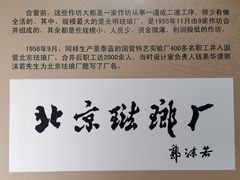 合营前，这些作坊大都是一家作坊从事一道或二道工序，很少有全
活的。其中，规模最大的是光明珐琅厂。是1955年11月由9家作坊合
并组成的，其余都是些规模小、人员少、资金微薄、利润极低的作坊。
1958年9月，同样生产景泰蓝的国营特艺实验厂400多名职工并入国
营北京珐琅厂。合并后职工达2000余人，当时设计室负责人钱美华请郭
沫若先生为北京珐琅厂题写了厂名。
北京珐瑯厂
郭沫若